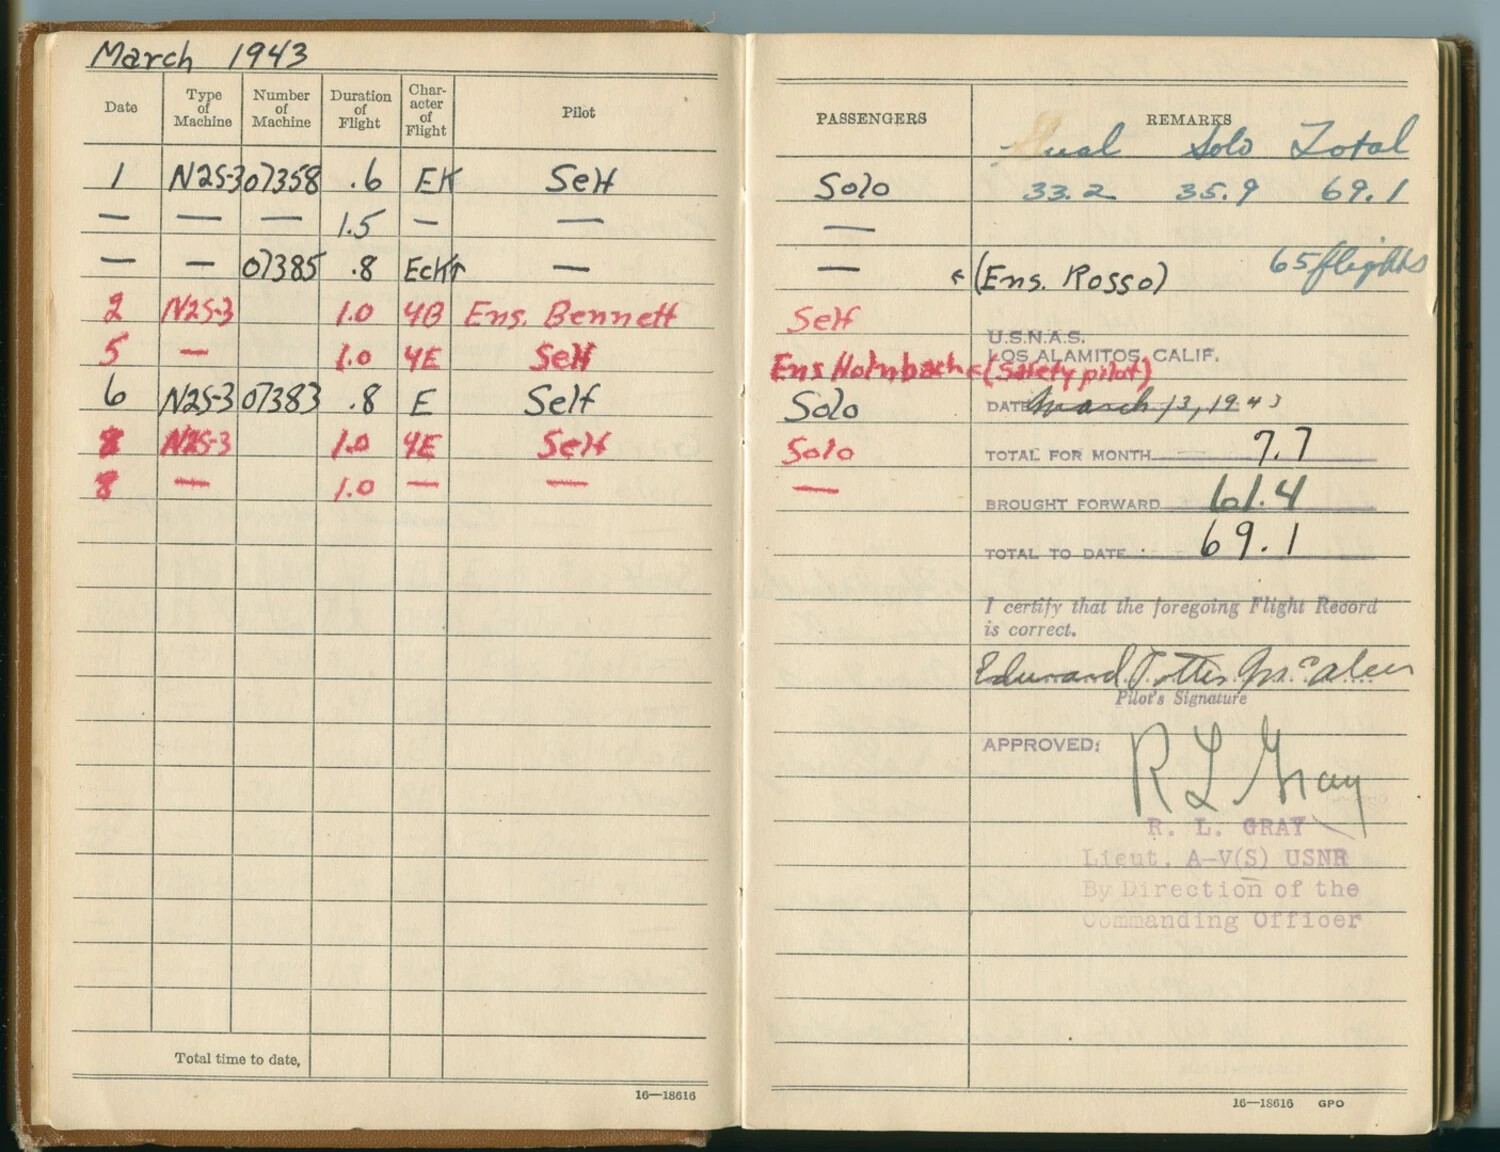 March 1943
Date Type of Machine Number of Machine Duration of Flight Char-acter of Flight Pilot
1 N2S-3 07358 .6 EK Self
— — — 1.5 — —
— — 07385 .8 EcK↑ —
2 N2S-3 1.0 4B Ens. Bennett
5 — 1.0 4E Self
6 N2S-3 07383 .8 E Self
8 N2S-3 1.0 4E Self
8 — 1.0 — —
Total time to date,
16—18616
PASSENGERS REMARKS
Dual Solo Total
Solo 33.2 35.9 69.1
—
— ← (Ens. Rosso) 65 flights
Self
U.S.N.A.S.
LOS ALAMITOS, CALIF.
Ens ← (Safety pilot)
Solo DATE March 13, 1943
Solo TOTAL FOR MONTH 7.7
— BROUGHT FORWARD 61.4
TOTAL TO DATE 69.1
I certify that the foregoing Flight Record
is correct.
Edward Potter McAleer
Pilot's Signature
APPROVED: R L Gray
R. L. GRAY
Lieut. A-V(S) USNR
By Direction of the
Commanding Officer
16—18616 GPO